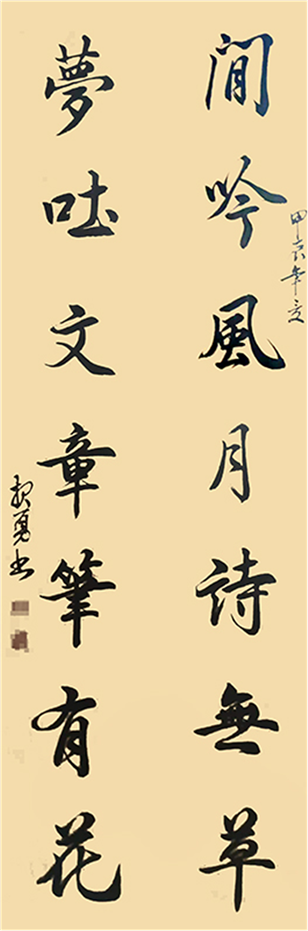 甲辰年
閒吟風月詩無草
夢吐文章筆有花
勇书